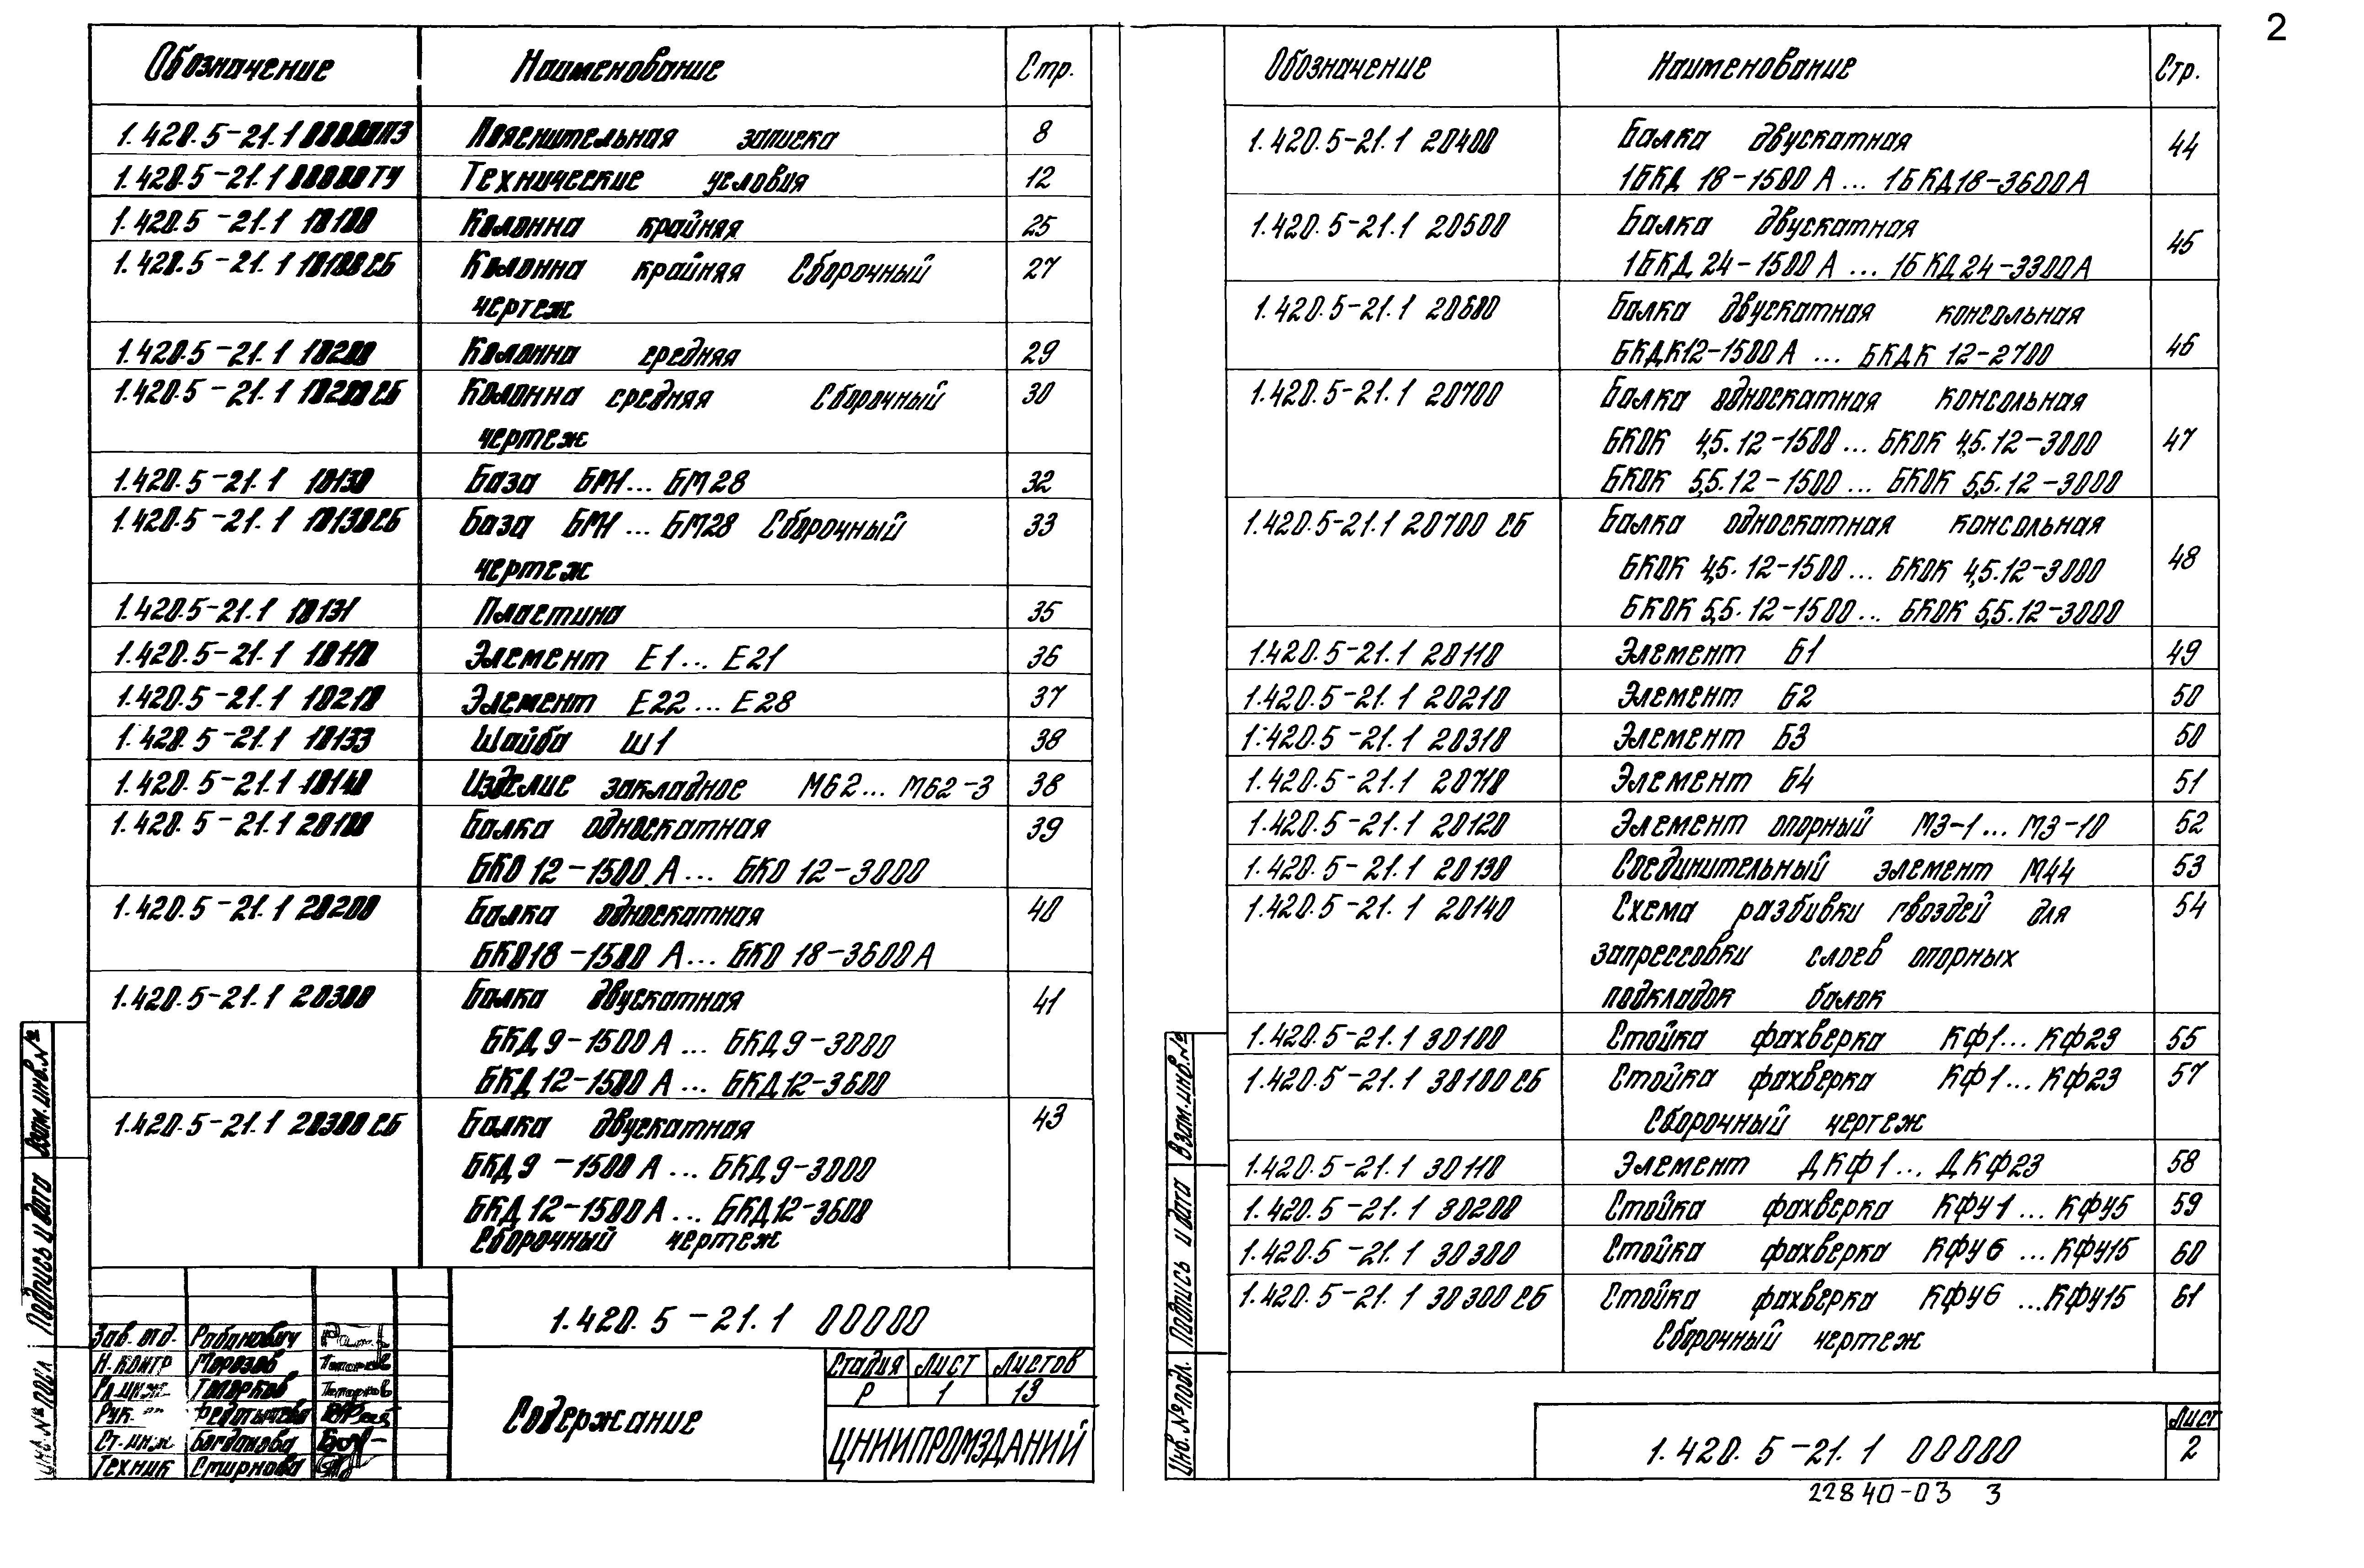 2
Обозначение Наименование Стр.
1.420.5-21.1 00000ПЗ Пояснительная записка 8
1.420.5-21.1 00000ТУ Технические условия 12
1.420.5-21.1 10100 Колонна крайняя 25
1.420.5-21.1 10100СБ Колонна крайняя Сборочный 27
чертеж
1.420.5-21.1 10200 Колонна средняя 29
1.420.5-21.1 10200СБ Колонна средняя Сборочный 30
чертеж
1.420.5-21.1 10130 База БМ1... БМ28 32
1.420.5-21.1 10130СБ База БМ1... БМ28 Сборочный 33
чертеж
1.420.5-21.1 10131 Пластина 35
1.420.5-21.1 10110 Элемент Е1... Е21 36
1.420.5-21.1 10210 Элемент Е22... Е28 37
1.420.5-21.1 10133 Шайба Ш1 38
1.420.5-21.1 10140 Изделие закладное М62... М62-3 38
1.420.5-21.1 20100 Балка односкатная 39
БКО 12-1500 А... БКО 12-3000
1.420.5-21.1 20200 Балка односкатная 40
БКО18-1500 А... БКО 18-3600А
1.420.5-21.1 20300 Балка двускатная 41
БКД 9-1500 А... БКД 9-3000
БКД 12-1500 А... БКД 12-3600
1.420.5-21.1 20300СБ Балка двускатная 43
БКД 9-1500 А... БКД 9-3000
БКД 12-1500 А... БКД 12-3600
Сборочный чертеж
1.420.5-21.1 00000
Зав. отд. Рабинович
Н. контр Морозов
Гл. инж. Топорков
Рук.
Ст. инж Богданова
Техник Смирнова
Содержание
Стадия Лист Листов
Р 1 13
ЦНИИПРОМЗДАНИЙ
Взам. инв. №
Подпись и дата
Инв. № подл
Обозначение Наименование Стр.
1.420.5-21.1 20400 Балка двускатная 44
1БКД 18-1500 А... 1БКД18-3600А
1.420.5-21.1 20500 Балка двускатная 45
1БКД 24-1500 А... 1БКД 24-3300А
1.420.5-21.1 20600 Балка двускатная консольная 46
БКДК12-1500 А... БКДК 12-2700
1.420.5-21.1 20700 Балка односкатная консольная 47
БКОК 4,5.12-1500... БКОК 4,5.12-3000
БКОК 5,5.12-1500... БКОК 5,5.12-3000
1.420.5-21.1 20700 СБ Балка односкатная консольная 48
БКОК 4,5.12-1500... БКОК 4,5.12-3000
БКОК 5,5.12-1500... БКОК 5,5.12-3000
1.420.5-21.1 20110 Элемент Б1 49
1.420.5-21.1 20210 Элемент Б2 50
1.420.5-21.1 20310 Элемент Б3 50
1.420.5-21.1 20710 Элемент Б4 51
1.420.5-21.1 20120 Элемент опорный МЭ-1... МЭ-10 52
1.420.5-21.1 20130 Соединительный элемент М44 53
1.420.5-21.1 20140 Схема разбивки гвоздей для 54
запрессовки слоев опорных
подкладок балок
1.420.5-21.1 30100 Стойка фахверка КФ1... КФ23 55
1.420.5-21.1 30100СБ Стойка фахверка КФ1... КФ23 57
Сборочный чертеж
1.420.5-21.1 30110 Элемент ДКФ1... ДКФ23 58
1.420.5-21.1 30200 Стойка фахверка КФУ1... КФУ5 59
1.420.5-21.1 30300 Стойка фахверка КФУ6... КФУ15 60
1.420.5-21.1 30300СБ Стойка фахверка КФУ6... КФУ15 61
Сборочный чертеж
Взам. инв. №
Подпись и дата
Инв. № подл.
1.420.5-21.1 00000
Лист
2
22840-03 3